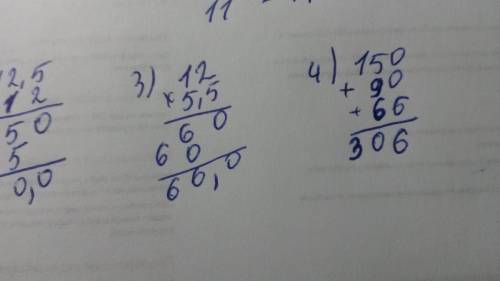 11
12,5
12
50
5
0,0
3) 12
× 5,5
60
60
66,0
4) 150
+ 90
+ 66
306